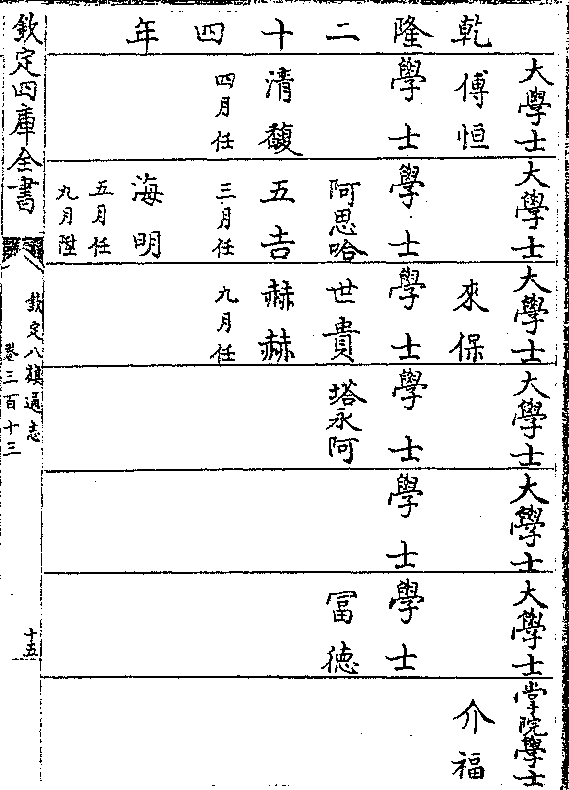 乾隆二十四年
大學士
傅恒
學士
清馥
四月任
大學士
學士
阿思哈
五吉
三月任
海明
五月任
九月陞
大學士
來保
學士
世貴
赫赫
九月任
大學士
學士
塔永阿
大學士
學士
大學士
學士
冨德
掌院學士
介福
欽定四庫全書
欽定八旗通志
卷三百十三
十五